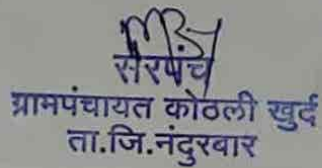 सरपंच
ग्रामपंचायत कोठली खुर्द
ता.जि.नंदुरबार